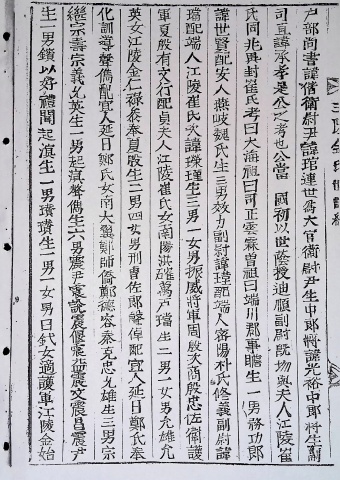 戶部尚書諱信衛尉尹諱琯連世爲大官衛尉尹生中郞將諱光裕中郞將生副
司直諱承孝是公之考也公當 國初以世蔭授迪順副尉旣歿與夫人江陵崔
氏同兆再封崔氏考曰大海祖曰司正雲霖曾祖曰端川郡事瞻生一男務功郞
諱世賢配安人燕岐魏氏生三男效力副尉諱瑋配端人密陽朴氏修義副尉諱
璿配端人江陵崔氏次諱瑾瑾生三男一女男振威將軍周殷次商殷忠佐衛護
軍夏殷有文行配貞夫人江陵崔氏女南陽洪確萬戶璿生二男一女男允雄允
英女江陵金仁祿泰泰夏殷生二男四女男刑曹佐郞 倬配宜人延日鄭氏泰
化訓導 儁配宜人延日鄭氏女南大 鄭師僑鄭德容泰克忠允雄生三男宗
繼宗善宗義允英生一男起 儁生六男震尹震說震 震 震文震昌震尹
生一男鑌以好禮聞起 生一男璜璜生一男一女男曰 女適護軍江陵金始